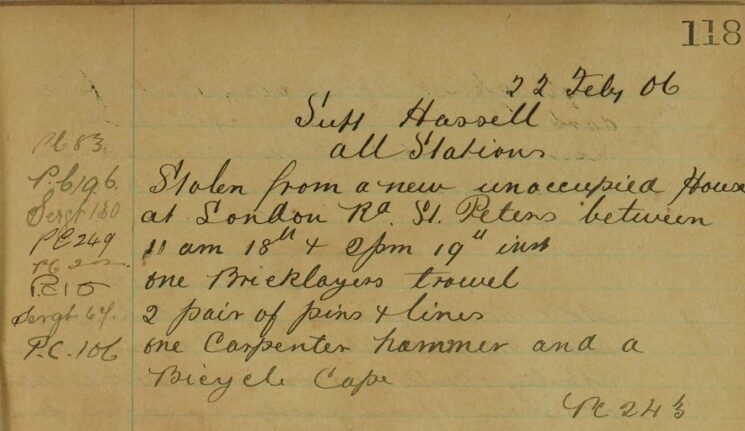 118
22 Feby 06
Supt Hassell
all Stations
Stolen from a new unoccupied House
at London Rd. St. Peters between
11 am 18th & 2pm 19th inst
one Bricklayers trowel
2 pair of pins & lines
one Carpenter hammer and a
Bicycle Cape
PC 243
PC 83.
P.C 196.
Sergt 130
PC 249
P.C 15
Sergt 64.
P.C. 106